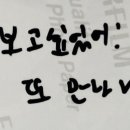 보고싶었어!
또 만나